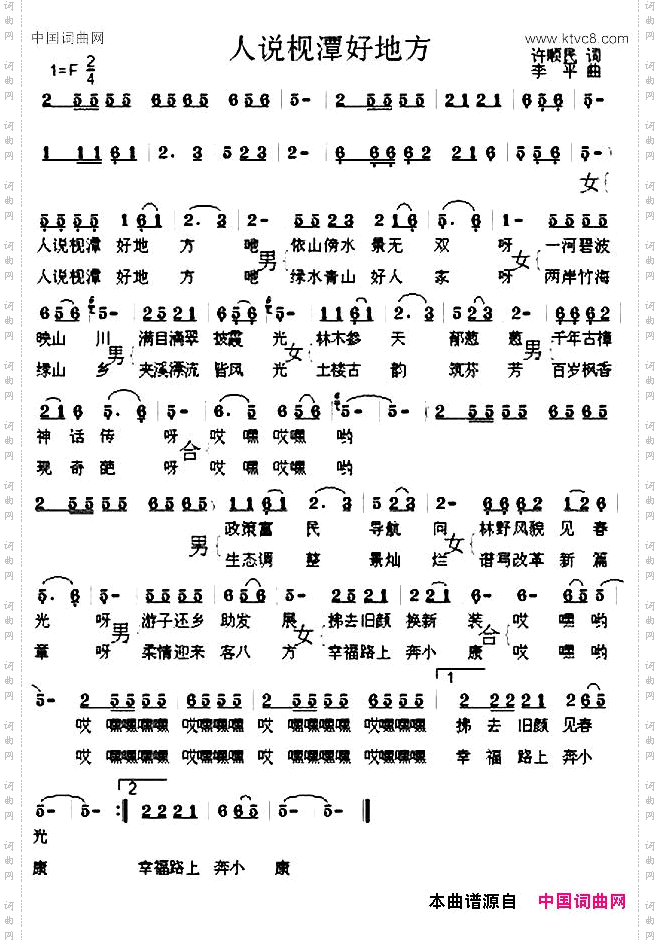 中国词曲网
www.ktvc8.com
人说枧潭好地方
1=F 2/4
许顺民 词
李 平 曲
2 5555 | 6565 | 656 | 5- | 2 5555 | 6565 | 2121 | 656 | 5-
1 1161 | 2. 3 | 5523 | 2- | 6 6662 | 216 | 5. 6 | 5-
女
5555 | 161 | 2. 3 | 2- | 5523 | 216 | 5. 6 | 1- | 5555
人说枧潭 好地 方 吔 男 依山傍水 景无 双 呀 女 一河碧波
人说枧潭 好地 方 吔 绿水青山 好人 家 呀 两岸竹海
656 | 5- | 2521 | 656 | 5- | 1161 | 2. 3 | 552 | 2- | 6662
映山 川 男 满目滴翠 披霞 光 女 林木参 天 郁葱 葱 男 千年古樟
绿山 乡 夹溪漂流 皆风 光 土楼古 韵 筑芬 芳 百岁枫香
216 | 5. 6 | 1- | 6. 5 | 6565 | 5- | 5- | 2 5555 | 6565 | 656 | 5-
神话传 呀 合 哎 嘿 哎嘿 哟
现奇葩 呀 哎 嘿 哎嘿 哟
2 5555 | 6565 | 656 | 5- | 1161 | 2. 3 | 5523 | 2- | 6662 | 126
男 政策富 民 导航 向 女 林野风貌 见春
生态调 整 景灿 烂 谱写改革 新篇
5. 6 | 5- | 2252 | 323 | 2- | 2252 | 321 | 2- | 6- | 656
光 呀 男 游子还乡 助发 展 女 拂去旧颜 换新 装 合 哎 嘿哟
章 呀 柔情迎来 客八 方 幸福路上 奔小 康 哎 嘿哟
1
5- | 2 5555 | 6565 | 2 5555 | 6565 | 2 2221 | 265
哎 嘿嘿嘿嘿 哎嘿嘿嘿 哎 嘿嘿嘿嘿 哎嘿嘿嘿 拂 去 旧颜 见春
哎 嘿嘿嘿嘿 哎嘿嘿嘿 哎 嘿嘿嘿嘿 哎嘿嘿嘿 幸 福 路上 奔小
2
5- | 5- :‖ 2221 | 665 | 5- | 5- ‖
光
康 幸福路上 奔小 康
本曲谱源自 中国词曲网